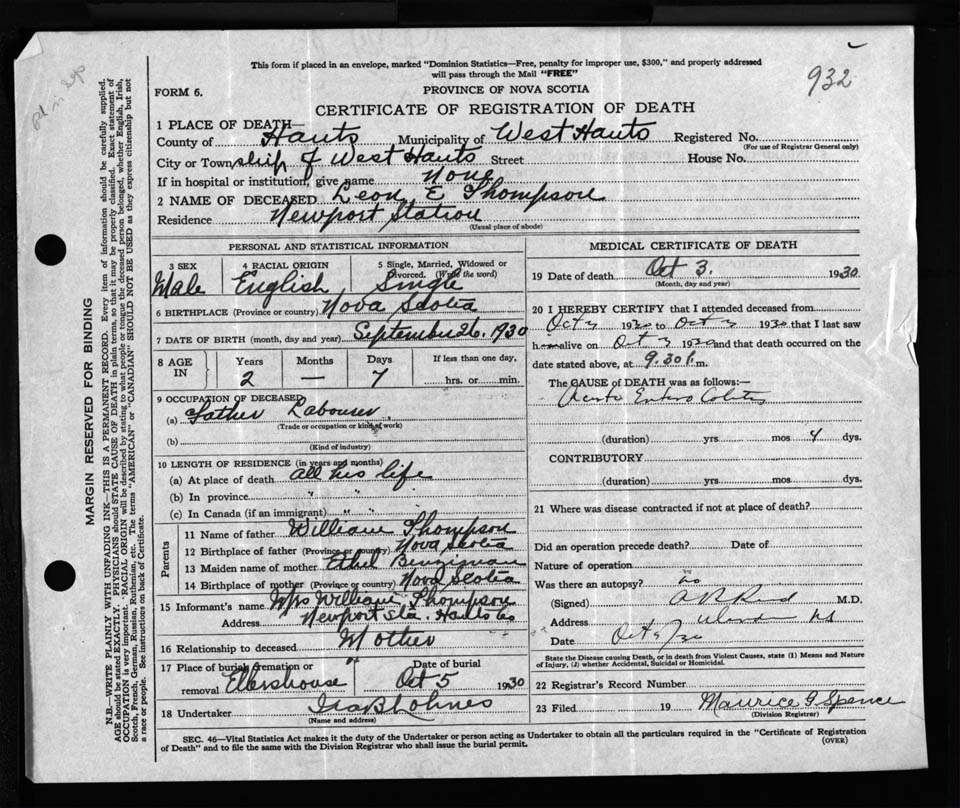 This form if placed in an envelope, marked "Dominion Statistics—Free, penalty for improper use, $300," and properly addressed
will pass through the Mail "FREE"
932
FORM 6.
PROVINCE OF NOVA SCOTIA
CERTIFICATE OF REGISTRATION OF DEATH
1 PLACE OF DEATH—
County of Hants Municipality of West Hants Registered No.
(For use of Registrar General only)
City or Township of West Hants Street House No.
If in hospital or institution, give name None
2 NAME OF DECEASED Leon E Thompson
Residence Newport Station
(Usual place of abode)
PERSONAL AND STATISTICAL INFORMATION
3 SEX 4 RACIAL ORIGIN 5 Single, Married, Widowed or Divorced. (Write the word)
Male English Single
6 BIRTHPLACE (Province or country) Nova Scotia
7 DATE OF BIRTH (month, day and year) September 26. 1930
8 AGE IN Years Months Days If less than one day,
2 — 7 hrs. or min.
9 OCCUPATION OF DECEASED
(a) Father Labourer
(Trade or occupation or kind of work)
(b)
(Kind of industry)
10 LENGTH OF RESIDENCE (in years and months)
(a) At place of death all his life
(b) In province " " "
(c) In Canada (if an immigrant) " " "
Parents
11 Name of father William Thompson
12 Birthplace of father (Province or country) Nova Scotia
13 Maiden name of mother Ethel
14 Birthplace of mother (Province or country) Nova Scotia
15 Informant's name Mrs William Thompson
Address Newport Sta. Hants Co
16 Relationship to deceased Mother
17 Place of burial, cremation or removal Ellershouse Date of burial Oct 5 1930
18 Undertaker
(Name and address)
MEDICAL CERTIFICATE OF DEATH
19 Date of death Oct 3. 1930.
(Month, day and year)
20 I HEREBY CERTIFY that I attended deceased from
Oct 3 1930 to Oct 3 1930 that I last saw
h alive on Oct 3 1930 and that death occurred on the
date stated above, at 9.30 p.m.
The CAUSE of DEATH was as follows:—
Acute Entero Colitis
(duration) yrs mos 4 dys.
CONTRIBUTORY
(duration) yrs. mos dys.
21 Where was disease contracted if not at place of death?
Did an operation precede death? Date of
Nature of operation
Was there an autopsy? no
(Signed) M.D.
Address NS
Date Oct
State the Disease causing Death, or in death from Violent Causes, state (1) Means and Nature
of Injury, (2) whether Accidental, Suicidal or Homicidal.
22 Registrar's Record Number
23 Filed 19 Maurice G. Spence
(Division Registrar)
SEC. 46—Vital Statistics Act makes it the duty of the Undertaker or person acting as Undertaker to obtain all the particulars required in the "Certificate of Registration
of Death" and to file the same with the Division Registrar who shall issue the burial permit. (OVER)
MARGIN RESERVED FOR BINDING
N.B.—WRITE PLAINLY WITH UNFADING INK—THIS IS A PERMANENT RECORD. Every item of information should be carefully supplied.
AGE should be stated EXACTLY. PHYSICIANS should STATE CAUSE OF DEATH in plain terms, so that it may be properly classified. Exact statement of
OCCUPATION is very important. "RACIAL ORIGIN" will be described by stating to what people or tongue the deceased person belonged, whether English, Irish,
Scotch, French, German, Russian, Ruthenian, etc. The terms "AMERICAN" or "CANADIAN" SHOULD NOT BE USED as they express citizenship but not
a race or people. See instructions on back of Certificate.